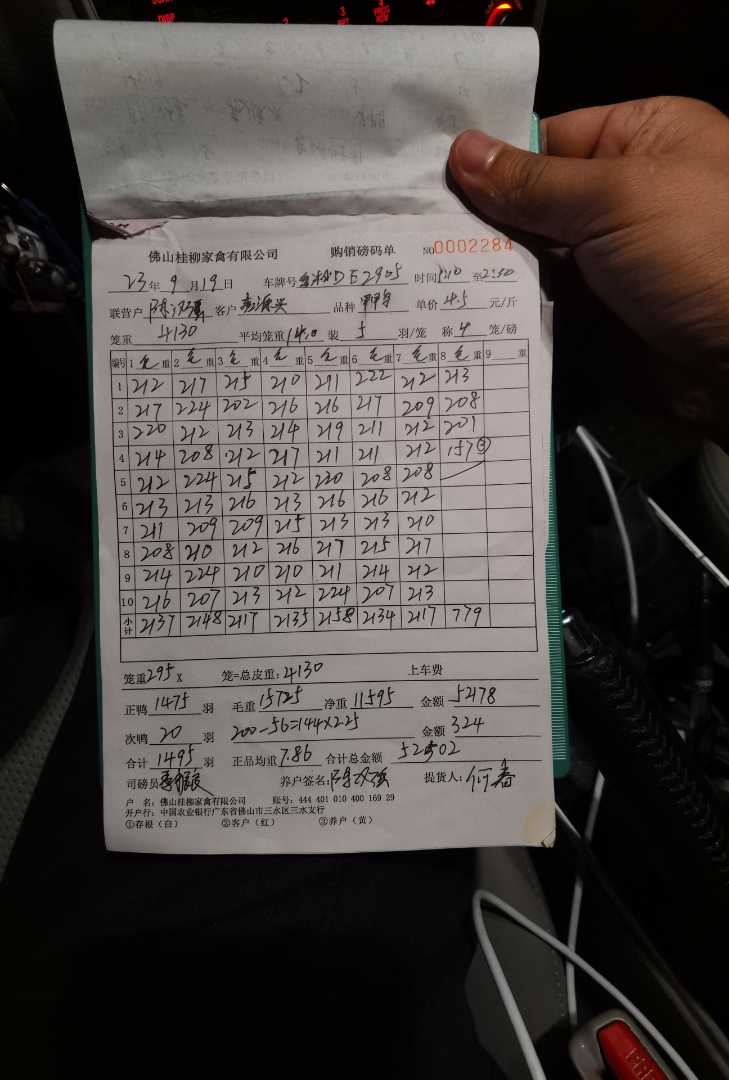 佛山桂柳家禽有限公司 购销磅码单 NO0002284
23年9月19日 车牌号 DE2905 时间 至2:30
联营户 客户 品种 单价4.5元/斤
笼重4130 平均笼重14.0 装5羽/笼 称4笼/磅
编号 1毛重 2毛重 3毛重 4毛重 5毛重 6毛重 7毛重 8毛重 9重
1 212 217 215 210 211 222 212 213
2 217 224 202 216 216 217 209 208
3 220 212 213 214 219 211 212 201
4 214 208 212 217 211 211 212 157③
5 212 224 215 212 220 208 208
6 213 213 216 213 216 216 212
7 211 209 209 215 213 213 210
8 208 210 212 216 217 215 217
9 214 224 210 210 211 214 212
10 216 207 213 212 224 207 213
小计 2137 2148 2117 2135 2158 2134 2117 779
笼重295X 笼=总皮重:4130 上车费
正鸭1475羽 毛重15725 净重11595 金额52178
次鸭20羽 200-56=144X2.25 金额324
合计1495羽 正品均重7.86 合计总金额52502
司磅员 养户签名:陈汉强 提货人:何春
户 名:佛山桂柳家禽有限公司 账号:444 401 010 400 169 29
开户行:中国农业银行广东省佛山市三水区三水支行
①存根(白) ②客户(红) ③养户(黄)